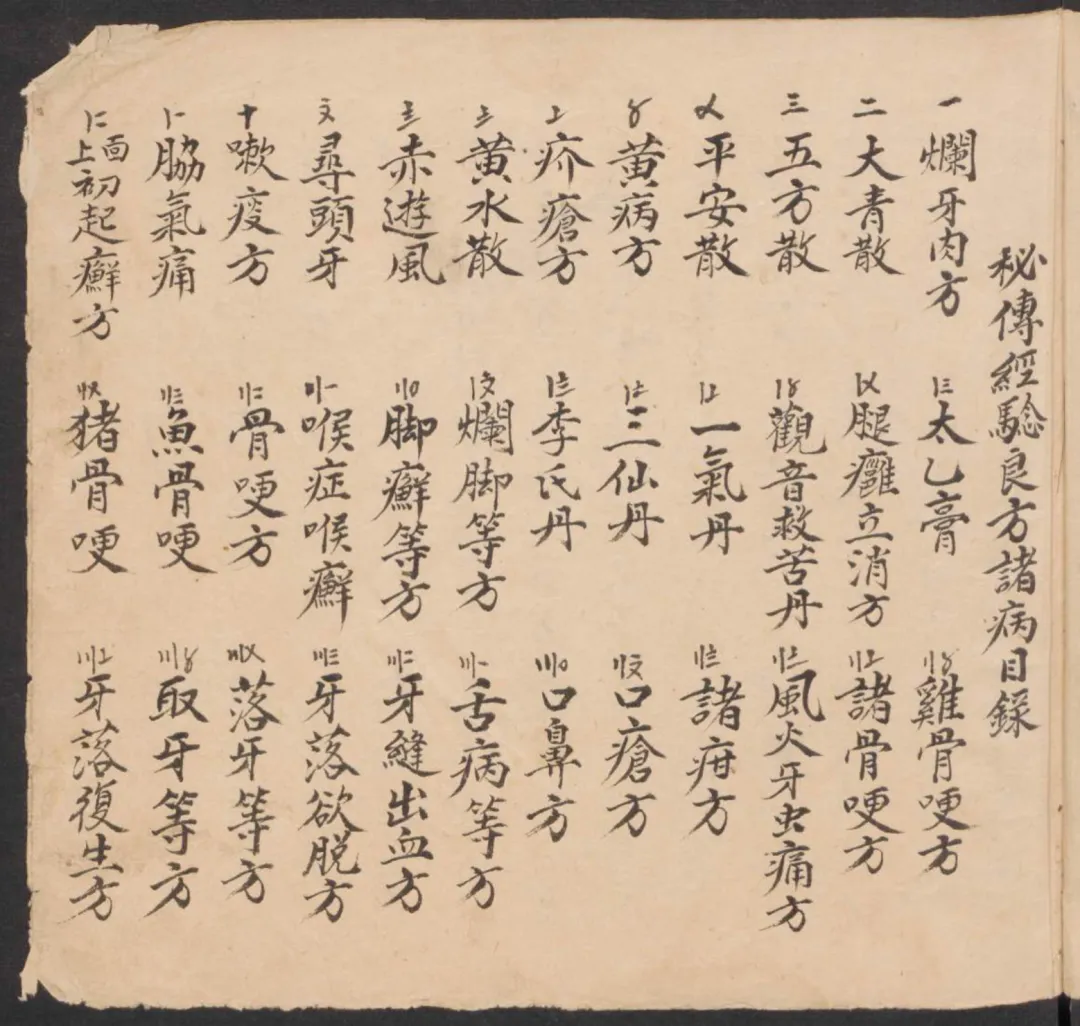 秘傳經驗良方諸病目録
一 爛牙肉方
二 大青散
三 五方散
〤 平安散
〥 黃病方
〦 疥瘡方
〧 黃水散
〨 赤遊風
〩 尋頭牙
十 嗽疫方
〡一 脇氣痛
〡二 面上初起癬方
〡三 太乙膏
〡〤 腿癰立消方
〡〥 觀音救苦丹
〡〦 一氣丹
〡〧 三仙丹
〡〨 李氏丹
〡〩 爛脚等方
〢〇 脚癬等方
〢一 喉症喉癬
〢二 骨哽方
〢三 魚骨哽
〢〤 猪骨哽
〢〥 雞骨哽方
〢〦 諸骨哽方
〢〧 風火牙虫痛方
〢〨 諸疳方
〢〩 口瘡方
〣〇 口鼻方
〣一 舌病等方
〣二 牙縫出血方
〣三 牙落欲脱方
〣〤 落牙等方
〣〥 取牙等方
〣〦 牙落復生方